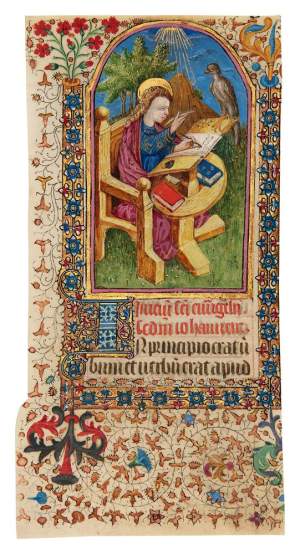 Iniciū sc̄i euāgelii
Scdm iohannem.
IN principio erat ū
bum et uerbū erat apud